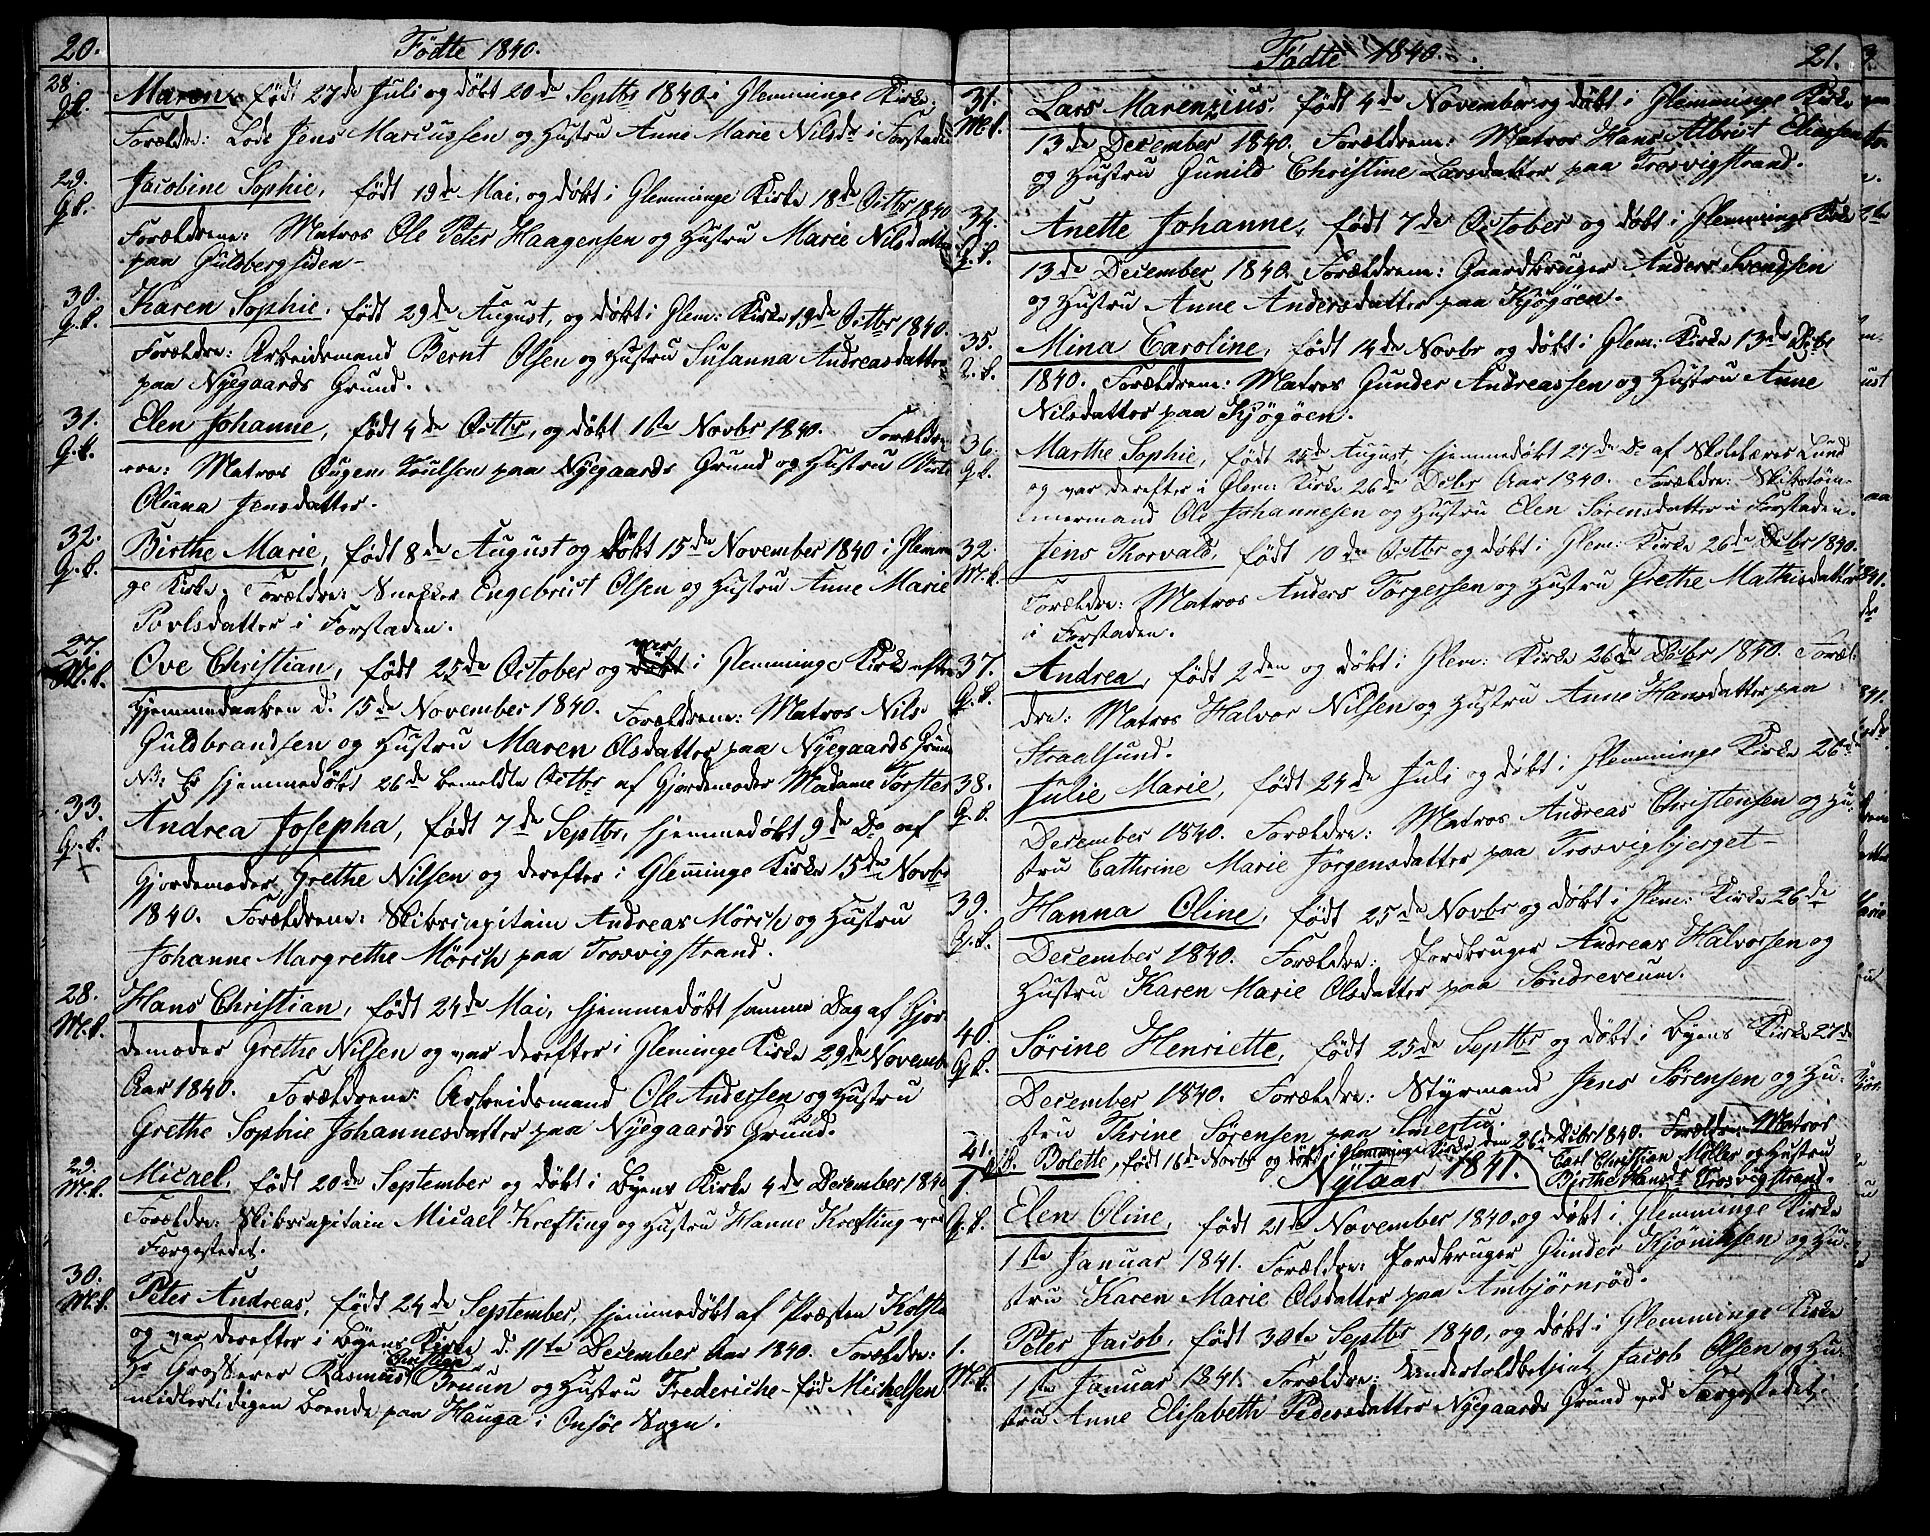 20. Fødte 1840.
28. P.b. Maren, født 27de Juli og døbt 20de Septbr 1840 i Glemminge Kirke.
Forældre: Lods Jens Marcussen og Hustru Anne Marie Nilsdr i Forstaden
29. P.b. Jacobine Sophie, født 19de Mai, og døbt i Glemminge Kirke 18de Octbr 1840
Forældrene: Matros Ole Peter Haagensen og Hustru Marie Nilsdatter
paa Guldbergsiden-
30. P.b. Karen Sophie, født 29de August, og døbt i Glem: Kirke 19de Octbr 1840.
Forældre: Arbeidsmand Bernt Olsen og Hustru Susanna Andreasdatter
paa Nyegaards Grund.
31. P.b. Elen Johanne, født 4de Octbr, og døbt 1ste Novbr 1840. Forældre-
ne: Matros Poulsen paa Nyegaards Grund og Hustru
Oliana Jensdatter.
32. P.b. Birthe Marie, født 8de August og døbt 15de November 1840 i Glemmin-
ge Kirke. Forældre: Snekker Engebrist Olsen og Hustru Anne Marie
Povlsdatter i Forstaden.
27. M.b. Ove Christian, født 25de October og døbt var i Glemminge Kirke efter
Hjemmedaaben d: 15de November 1840. Forældrene: Matros Nils
Guldbrandsen og Hustru Maren Olsdatter paa Nyegaards Grund
NB: Er hjemmedøbt 26de bemeldte Octbr af Gjordemoder Madame Torster
33. P.b. Andrea Josepha, født 7de Septbr, hjemmedøbt 9de Do af
Gjordemoder Grethe Nilsen og derefter i Glemminge Kirke 15de Novbr
1840. Forældrene: Skibscapitain Andreas Mørch og Hustru
Johanne Margrethe Mørch paa Trosvigstrand.
28. M.b. Hans Christian, født 24de Mai, hjemmedøbt samme Dag af Gjor-
demoder Grethe Nilsen og var derefter i Gleminge Kirke 29de Novemb
Aar 1840. Forældrene: Arbeidsmand Ole Andersen og Hustru
Grethe Sophie Johannesdatter paa Nyegaards Grund.
29. M.b. Micael, født 20de September og døbt i Byens Kirke 4de December 1840
Forældre: Skibscapitain Micael Krefting og Hustru Hanne Krefting ved
Færgestedet.
30. M.b. Peter Andreas, født 24de September, hjemmedøbt af Præsten
og var derefter i Byens Kirke d: 11te December Aar 1840. Forældre:
Hr Grosserer Rasmus Christian Bruun og Hustru Frederiche fød Michelsen
midlertidigen boende paa Hauga i Onsøe Sogn.
Fødte 1840. 21.
31. M.b. Lars Marenzius født 4de November og døbt i Glemminge Kirke
13de December 1840. Forældrene: Matros Hans Albrist Eliassen
og Hustru Gunild Christine Larsdatter paa Trosvigstrand.
34. P.b. Anette Johanne, født 7de October og døbt i Glemminge Kirke
13de December 1840. Forældrene: Gaardbruger Anders Svendsen
og Hustru Anne Andersdatter paa Kjøgøen.
35. P.b. Mina Caroline, født 14de Novbr og døbt i Glem: Kirke 13de Dcbr
1840. Forældrene: Matros Gunder Andreassen og Hustru Anne
Nilsdatter paa Kjøgøen.
36. P.b. Marthe Sophie, født 24de August, hjemmedøbt 27de Do af Skolelærer Lund
og var derefter i Glem: Kirke 26de Dcbr Aar 1840. Forældre: Skibstøm-
mermand Ole Johannesen og Hustru Elen Sørensdatter i Forstaden.
32. M.b. Jens Thorvald, født 10de Octbr og døbt i Glem: Kirke 26de Dcbr 1840.
Forældre: Matros Anders Torgersen og Hustru Grethe Mathisdatter
i Forstaden.
37. P.b. Andrea, født 2den og døbt i Glem: Kirke 26de Dcbr 1840. Foræl-
dre: Matros Halvor Nilsen og Hustru Anne Hansdatter paa
Straalsund.
38. P.b. Julie Marie, født 24de Juli og døbt i Glemminge Kirke 26de
December 1840. Forældre: Matros Andreas Christensen og Hu-
stru Cathrine Marie Jørgensdatter paa Trosvigbjerget-
39. P.b. Hanna Oline, født 25de Novbr og døbt i Glem: Kirke 26de
December 1840. Forældre: Jordbruger Andreas Halvorsen og
Hustru Karen Marie Olsdatter paa Søndreveum.
40. P.b. Sørine Henriette, født 25de Septbr og døbt i Byens Kirke 27de
December 1840. Forældre: Styrmand Jens Sørensen og Hu-
stru Thrine Sørensen paa Smertu.
41. P.b. Bolette, født 16de Novbr og døbt i Glemminge Kirke den 26de Dcbr 1840. Forældre Matros
Carl Christian Møller og Hustru
Birthe Hansdr Trosvigstrand.
Nytaar 1841.
1. P.b. Elen Oline, født 21de November 1840, og døbt i Glemminge Kirke
1ste Januar 1841. Forældre: Jordbruger Gunder Kjønigsen og Hu-
stru Karen Marie Olsdatter paa Ambjørnrød.
1. M.b. Peter Jacob, født 30te Septbr 1840, og døbt i Glemminge Kirke
1ste Januar 1841. Forældre: Undertoldbetjent Jacob Olsen og Hu-
stru Anne Elisabeth Pedersdatter Nyegaards Grund ved Færgestedet.